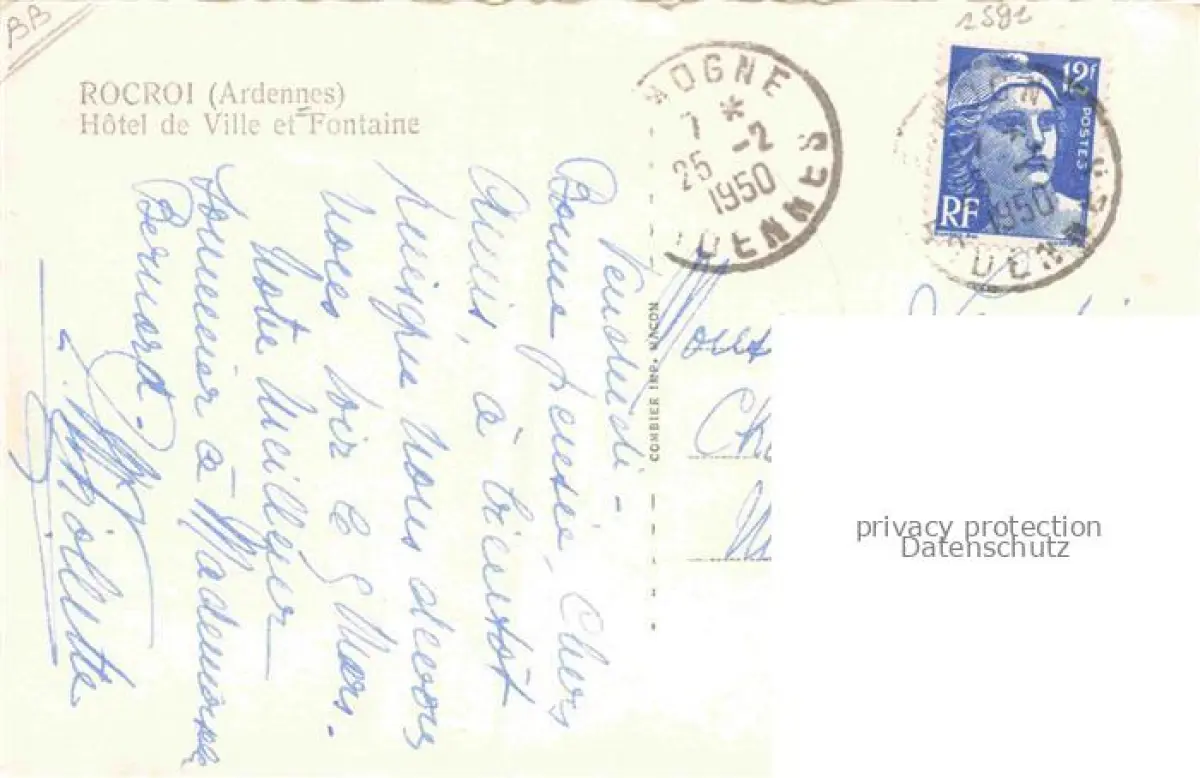 BB
1591
ROCROI (Ardennes)
Hôtel de Ville et Fontaine
NOGNE
7 *
25 -2
1950
DENNES
12f
POSTES
RF
1950
DENN
COMBIER IMP. MACON
Vendredi -
Bonne pensée, Chers
Amis, à bientôt
puisque nous devons
nous voir le 5 Mars.
Notre meilleur
souvenir à Mademoiselle
Bernard.
privacy protection
Datenschutz